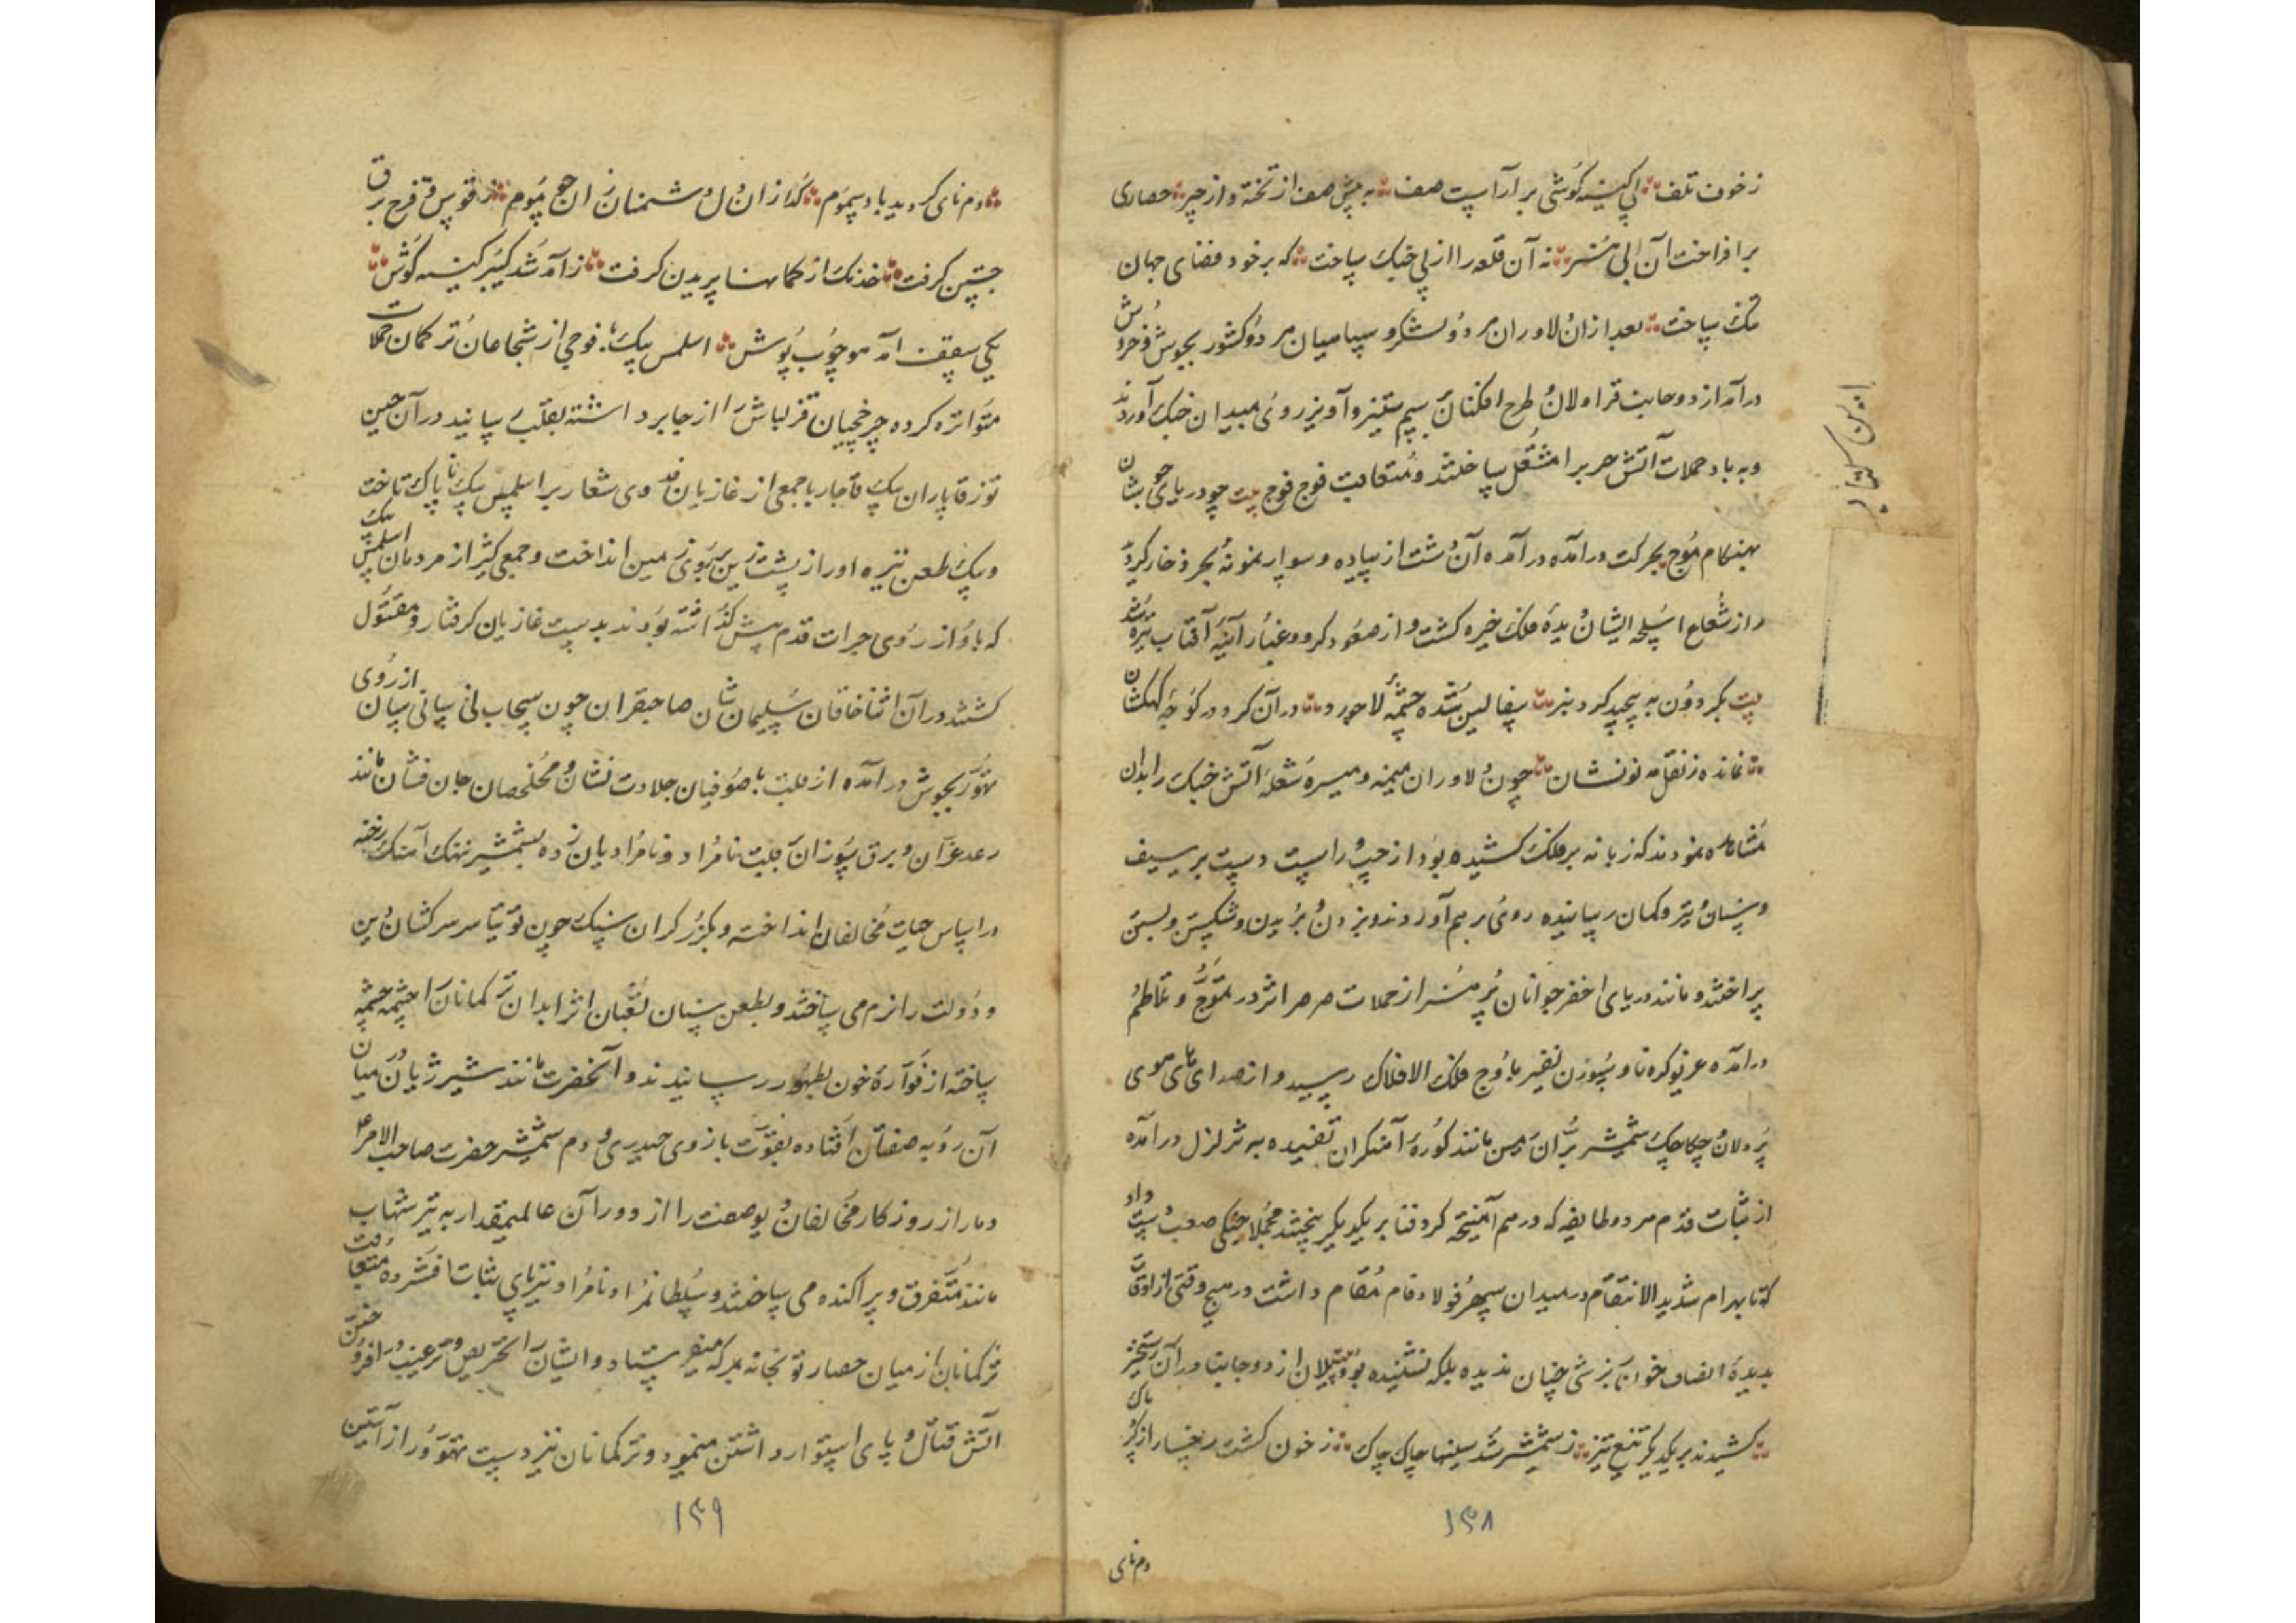 زخون تلف پی کینه کوشی برآراست صف به پیش صف از تخته و از چپر حصاری
برافراخت آن پی هنر نه آن قلعه را از پی جنک ساخت که بر خود فضای جهان
تنک ساخت بعد از ان دلاوران هر دو لشکر و سپاهیان هر دو کشور بجوش و خروش
درآمد از دو جانب قراولان طرح افکنان بسیم ستیز و آویز روی بمیدان جنک آوردند
و به باد حملات آتش حرب را مشتعل ساختند و متعاقب فوج فوج بیت چو دریای جوشان
بهنکام موج بحرکت درآمده درآمده آن دشت از پیاده و سوار نمونه بحر ذخار کردید
و از شعاع اسلحه ایشان دیده فلک خیره کشت و از صعود کرد و غبار آیینه آفتاب تیره شد
بیت بکردون به پیچید کرد نبرد سفالین شده چشمه لاجورد در آن کرد در کوچه کهکشان
نمانده ز نقل مه نو نشان چون دلاوران میمنه و میسره شعله آتش جنک را بدان
مشابه نمودند که زبانه بر فلک کشیده بود از چپ و راست دست بر سیف
و سنان و تیر و کمان رسانیده روی بر هم آوردند و بزدن و بریدن و شکستن و بستن
پرداختند و مانند دریای اخضر جوانان پر هنر از حملات صرصر اثر در تموج و تلاطم
درآمده غریو کره نا و سوزن نفیر باوج فلک الافلاک رسید و از صدای های هوی
پردلان و چکاچک شمشیر بران زمین مانند کوره آهنکران تفیده به تزلزل درآمده
از ثبات قدم هر دو طایفه که درهم آمیخته کرد فنا بر یکدیکر بیختند مجملا جنکی صعب دست داد
که تا بهرام شدید الانتقام در میدان سپهر فولاد فام مقام داشت در هیچ وقتی از اوقات
بدیده انصاف خوانا بزشی چنان ندیده بلکه نشنیده بود و یلان از دو جانب در آن رستخیز
کشیدند بر یکدیکر تیغ تیز ز شمشیر شد سینها چاک چاک ز خون کشت رخسار از کرد پاک
۱۳۸
دم نای
دم نای کردید باد سموم کدازان دل دشمنان زان چو موم ز قوس قزح برق
جستن کرفت خدنک از کمانها پریدن کرفت ز آمد شد کیبر کینه کوش
یکی سقف آمد هوا چوب پوش اسلمس بیک با فوجی از شجاعان ترکمان حملات
متواتره کرده چرخچیان قزلباش را از جا برداشته بقلب رسانید در آن حین
توزقاپاران بیک قاجار با جمعی از غازیان فدوی شعار بر اسلمس بیک ناپاک تاخت
و بیک طعن نیزه او را از پشت زین بروی زمین انداخت و جمعی کثیر از مردمان اسلمس بیک
که با او از روی جرات قدم پیش کذاشته بودند بدست غازیان کرفتار و مقتول
کشتند در آن اثنا خاقان سلیمان شان صاحبقران چون سحاب نیسانی سان از روی
تهور بجوش درآمده از قلب با صوفیان جلادت نشان و مخلصان جان فشان مانند
رعد غران و برق سوزان بر قلب نامراد و نامرادیان زده بشمشیر نهنک آهنک رخنه
در اساس حیات مخالفان انداخته و بکرز کران سنک چون توتیا سر سرکشان دین
و دولت را نرم می ساختند و بطعن سنان ثعبان اثر ابدان ترکمانان را چشمه چشمه
ساخته از فواره خون بظهور رسانیدند و آنحضرت مانند شیر ژیان در میان
آن روبه صفتان افتاده بقوت بازوی حیدری و دم شمشیر حضرت صاحب الامر
دمار از روزکار مخالفان دیو صفت را از دور آن عالیمقدار به تیر شهاب
مانند متفرق و پراکنده می ساختند و سلطانمراد نامراد نیز پای ثبات افشرده متعاقب
ترکمانان از میان حصار توپخانه بمعرکه میفرستاد و ایشان را تحریص و ترغیب در افروختن
آتش قتال و پای استوار داشتن مینمود و ترکمانان نیز دست تهور از آستین
۱۳۹